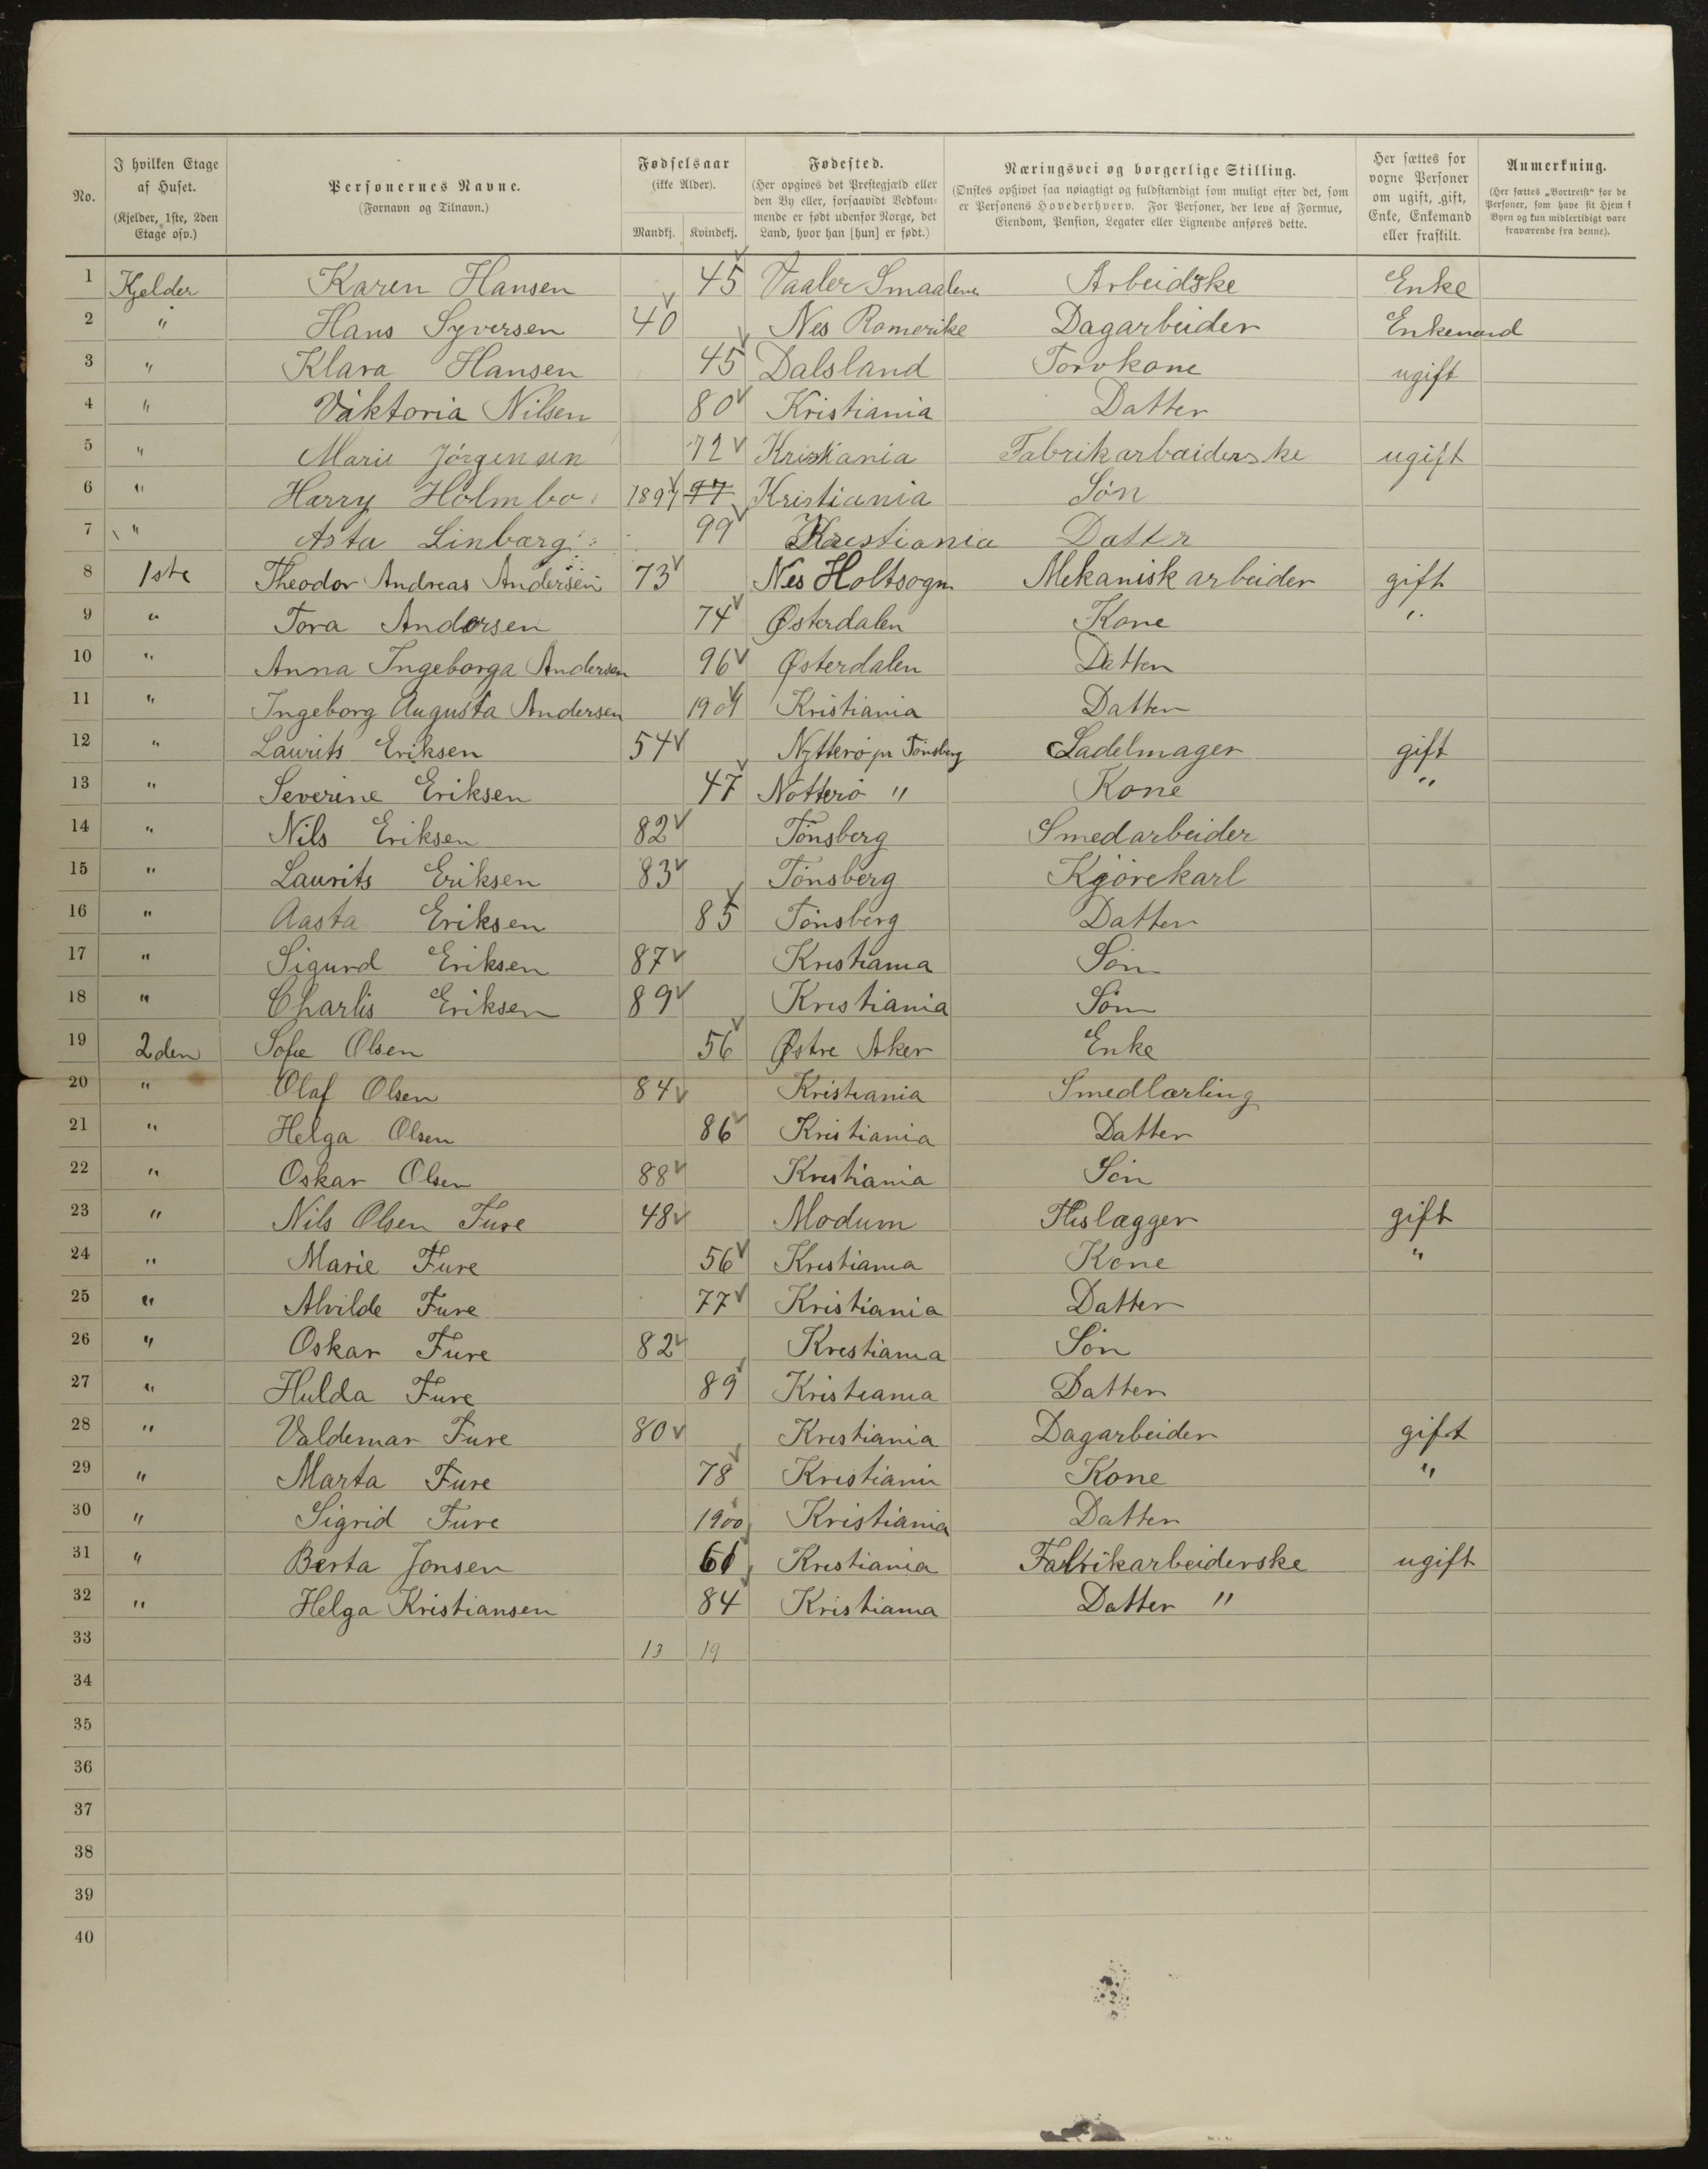 No.
I hvilken Etage af Huset. (Kjelder, 1ste, 2den Etage osv.)
Personernes Navne. (Fornavn og Tilnavn.)
Fødselsaar (ikke Alder). Mandkj. Kvindekj.
Fødested. (Her opgives det Prestegjæld eller den By eller, forsaavidt Vedkommende er født udenfor Norge, det Land, hvor han [hun] er født.)
Næringsvei og borgerlige Stilling. (Ønskes opgivet saa nøiagtigt og fuldstændigt som muligt efter det, som er Personens Hovederhverv. For Personer, der leve af Formue, Eiendom, Pension, Legater eller Lignende anføres dette.)
Her sættes for voxne Personer om ugift, gift, Enke, Enkemand eller fraskilt.
Anmerkning. (Her sættes „Bortreist“ for de Personer, som have sit Hjem i Byen og kun midlertidigt vare fraværende fra denne).
1 Kjelder Karen Hansen 45 Vaaler Smaalene Arbeidske Enke
2 " Hans Syversen 40 Nes Romerike Dagarbeider Enkemand
3 " Klara Hansen 45 Dalsland Torvkone ugift
4 " Viktoria Nilsen 80 Kristiania Datter
5 " Marie Jörgensen 72 Kristiania Fabrikarbaiderske ugift
6 " Harry Holmbo 1897 97 Kristiania Sön
7 " Asta Linbærg 99 Krestiania Datter
8 1ste Theodor Andreas Andersen 73 Nes Holtsogn Mekanisk arbeider gift
9 " Tora Andersen 74 Østerdalen Kone "
10 " Anna Ingeborga Andersen 96 Østerdalen Datter
11 " Ingeborg Augusta Andersen 1901 Kristiania Datter
12 " Laurits Eriksen 54 Nytterö pr Tönsberg Sadelmager gift
13 " Severine Eriksen 47 Nötterö " Kone "
14 " Nils Eriksen 82 Tönsberg Smedarbeider
15 " Laurits Eriksen 83 Tönsberg Kjörekarl
16 " Aasta Eriksen 85 Tönsberg Datter
17 " Sigurd Eriksen 87 Kristiania Sön
18 " Charlis Eriksen 89 Kristiania Sön
19 2den Sofie Olsen 56 Østre Aker Enke
20 " Olaf Olsen 84 Kristiania Smedlærling
21 " Helga Olsen 86 Kristiania Datter
22 " Oskar Olsen 88 Kristiania Sön
23 " Nils Olsen Fure 48 Modum Flislægger gift
24 " Marie Fure 56 Kristiania Kone "
25 " Alvilde Fure 77 Kristiania Datter
26 " Oskar Fure 82 Kristiania Sön
27 " Hulda Fure 89 Kristiania Datter
28 " Valdemar Fure 80 Kristiania Dagarbeider gift
29 " Marta Fure 78 Kristiania Kone "
30 " Sigrid Fure 1900 Kristiania Datter
31 " Berta Jonsen 61 Kristiania Fabrikarbeiderske ugift
32 " Helga Kristiansen 84 Kristiania Datter "
33 13 19
34
35
36
37
38
39
40